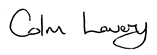 Colm Lavery